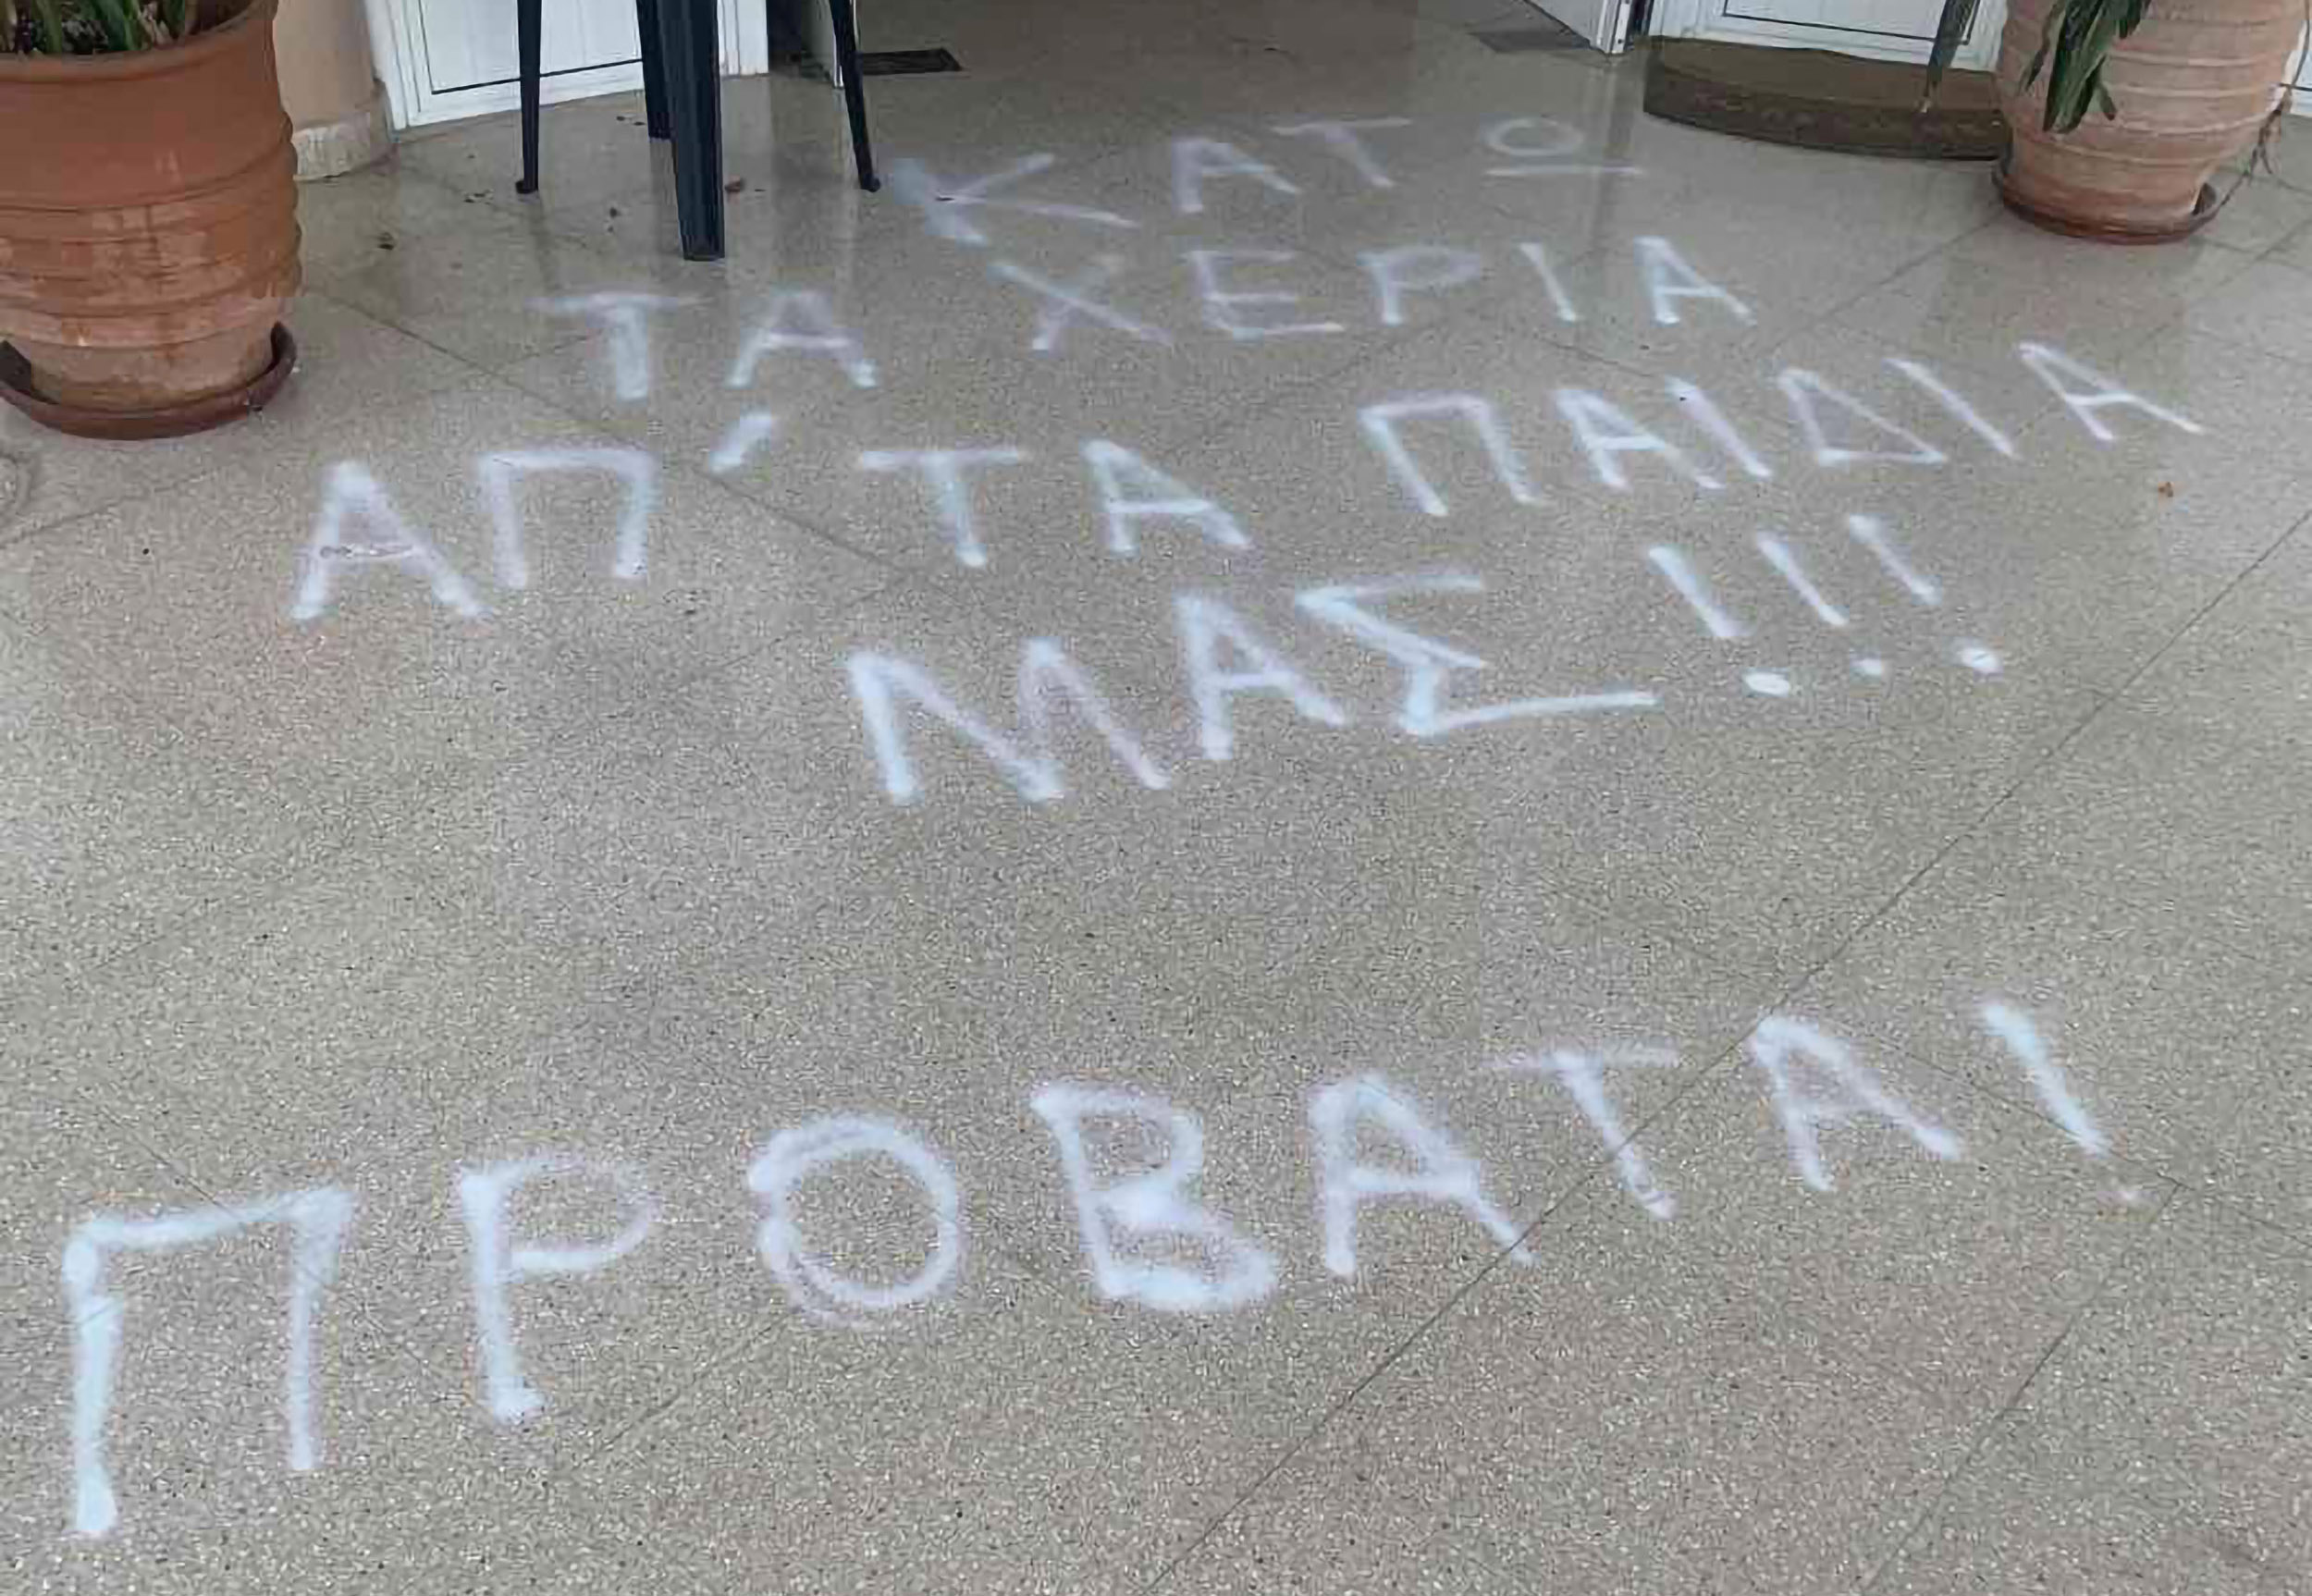 ΚΑΤΩ
ΤΑ ΧΕΡΙΑ
ΑΠ' ΤΑ ΠΑΙΔΙΑ
ΜΑΣ!!!
ΠΡΟΒΑΤΑ!